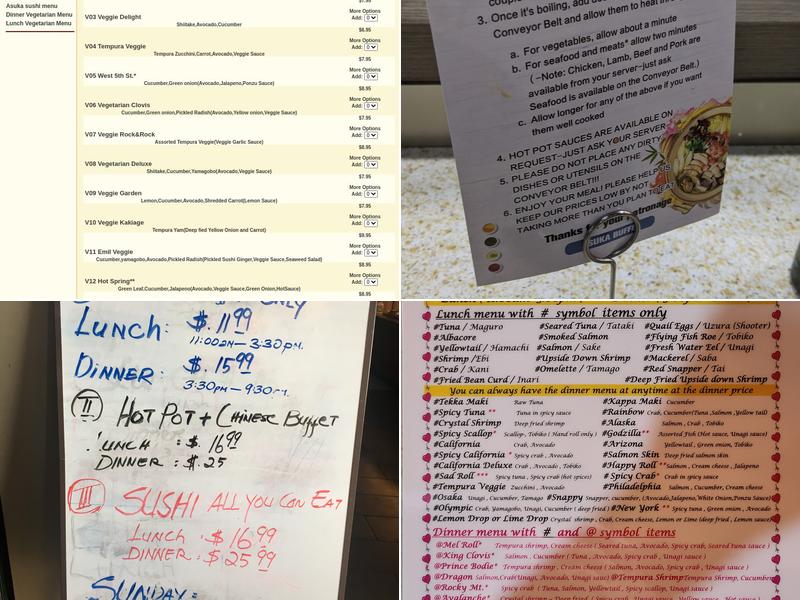 Asuka sushi menu
Dinner Vegetarian Menu
Lunch Vegetarian Menu
$7.95
V03 Veggie Delight
More Options
Add: 0
Shiitake,Avocado,Cucumber
$6.95
V04 Tempura Veggie
More Options
Add: 0
Tempura Zucchini,Carrot,Avocado,Veggie Sauce
$7.95
V05 West 5th St.*
More Options
Add: 0
Cucumber,Green onion(Avocado,Jalapeno,Ponzu Sauce)
$8.95
V06 Vegetarian Clovis
More Options
Add: 0
Cucumber,Green onion,Pickled Radish(Avocado,Yellow onion,Veggie Sauce)
$7.95
V07 Veggie Rock&Rock
More Options
Add: 0
Assorted Tempura Veggie(Veggie Garlic Sauce)
$8.95
V08 Vegetarian Deluxe
More Options
Add: 0
Shiitake,Cucumber,Yamagobo(Avocado,Veggie Sauce)
$7.95
V09 Veggie Garden
More Options
Add: 0
Lemon,Cucumber,Avocado,Shredded Carrot(Lemon Sauce)
$7.95
V10 Veggie Kakiage
More Options
Add: 0
Tempura Yam(Deep fied Yellow Onion and Carrot)
$9.95
V11 Emil Veggie
More Options
Add: 0
Cucumber,yamagobo,Avocado,Pickled Radish(Pickled Sushi Ginger,Veggie Sauce,Seaweed Salad)
$8.95
V12 Hot Spring**
More Options
Add: 0
Green Leaf,Cucumber,Jalapeno(Avocado,Veggie Sauce,Green Onion,HotSauce)
$8.95
3. Once it's boiling, add
Conveyor Belt and allow them to heat
a. For vegetables, allow about a minute
b. For seafood and meats* allow two minutes
(~Note: Chicken, Lamb, Beef and Pork are
available from your server~just ask
Seafood is available on the Conveyor Belt.)
c. Allow longer for any of the above if you want
them well cooked
4. HOT POT SAUCES ARE AVAILABLE ON
REQUEST~JUST ASK YOUR SERVER
5. PLEASE DO NOT PLACE ANY DIRTY
DISHES OR UTENSILS ON THE
CONVEYOR BELT!!!
6. ENJOY YOUR MEAL! PLEASE HELP US
KEEP OUR PRICES LOW BY NOT
TAKING MORE THAN YOU PLAN TO EAT
Thanks for your Patronage
SUKA BUFF
ONLY
LUNCH: $.11.99
11:00AM-3:30pm.
DINNER: $.15.99
3:30pm-9:30pm.
II HOT POT + CHINESE BUFFET
LUNCH : $.16.99
DINNER : $.25
III SUSHI ALL YOU CAN EAT
LUNCH : $16.99
DINNER : $25.99
SUNDAY:
Lunch menu with # symbol items only
#Tuna / Maguro #Seared Tuna / Tataki #Quail Eggs / Uzura (Shooter)
#Albacore #Smoked Salmon #Flying Fish Roe / Tobiko
#Yellowtail / Hamachi #Salmon / Sake #Fresh Water Eel / Unagi
#Shrimp /Ebi #Upside Down Shrimp #Mackerel / Saba
#Crab / Kani #Omelette / Tamago #Red Snapper / Tai
#Fried Bean Curd / Inari #Deep Fried Upside down Shrimp
You can always have the dinner menu at anytime at the dinner price
#Tekka Maki Raw Tuna #Kappa Maki Cucumber
#Spicy Tuna ** Tuna in spicy sauce #Rainbow Crab, Cucumber(Tuna ,Salmon ,Yellow tail)
#Crystal Shrimp Deep fried shrimp #Alaska Salmon , Crab , Tobiko
#Spicy Scallop* Scallop , Tobiko ( Hand roll only ) #Godzilla** Assorted Fish (Hot sauce, Unagi sauce)
#California Crab, Avocado #Arizona Yellowtail , Green onion
#Spicy California * Spicy crab , Avocado #Salmon Skin Deep fried salmon skin
#California Deluxe Crab , Avocado , Tobiko #Happy Roll **Salmon , Cream cheese , Jalapeno
#Sad Roll *** Spicy tuna , Spicy crab (hot spices) #Spicy Crab* Crab in spicy sauce
#Tempura Veggie Zucchini , Avocado #Philadelphia Salmon , Cucumber, Cream cheese
#Osaka Unagi , Cucumber, Tamago #Snappy Snapper, cucumber, (Avocado,Jalapeno,White Onion,Ponzu Sauce)
#Olympic Crab, Yamagobo, Unagi, Cucumber ( deep fried ) #New York ** Spicy tuna , Green onion , Avocado
#Lemon Drop or Lime Drop Crystal shrimp , Crab, Cream cheese, Lemon or Lime (deep fried , Lemon sauce)
Dinner menu with # and @ symbol items
@Mel Roll* Tempura shrimp, Cream cheese ( Seared tuna, Avocado, Spicy crab, Seared tuna sauce )
@King Clovis* Salmon , Cucumber ( Tuna, Avocado, Spicy crab, Unagi sauce )
@Prince Bodie* Tempura shrimp , Cream cheese ( Salmon, Avocado, Spicy crab, Unagi sauce )
@Dragon Salmon,Crab(Unagi, Avocado, Unagi sauce) @Tempura Shrimp Tempura Shrimp, Cucumber
@Rocky Mt.* Spicy crab ( Tuna, Salmon, Yellowtail , Spicy scallop, Unagi sauce )
@Avalanche*